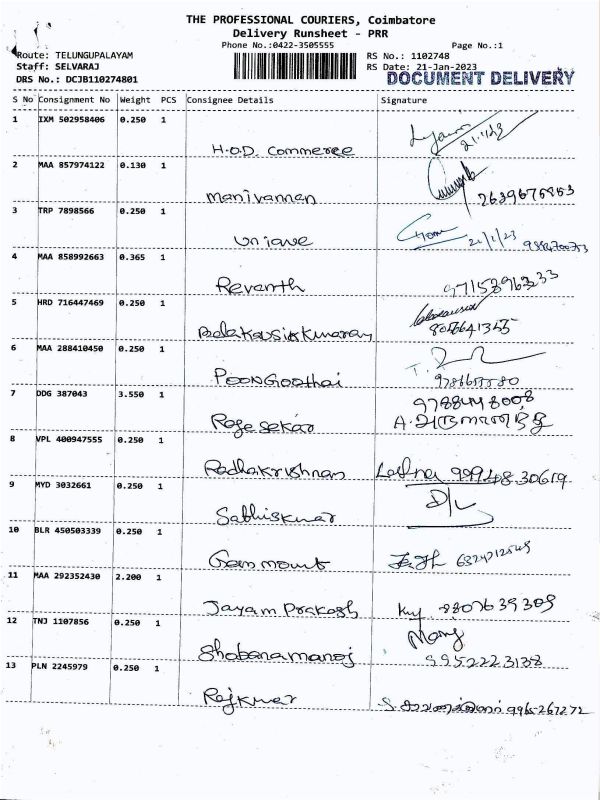 THE PROFESSIONAL COURIERS, Coimbatore
Delivery Runsheet - PRR
Phone No.:0422-3505555 Page No.:1
Route: TELUNGUPALAYAM RS No.: 1102748
Staff: SELVARAJ RS Date: 21-Jan-2023
DRS No.: DCJB110274801 DOCUMENT DELIVERY
S No Consignment No Weight PCS Consignee Details Signature
1 IXM 502958406 0.250 1
H.O.D. Commerce 21/1/23
2 MAA 857974122 0.130 1
Manivannan
3 TRP 7898566 0.250 1
Unique 21/1/23
4 MAA 858992663 0.365 1
Revanth
5 HRD 716447469 0.250 1
6 MAA 288410450 0.250 1
Poongothai
7 DDG 387043 3.550 1
9788448008
Rajesekar
8 VPL 400947555 0.250 1
Radhakrishnan 99948.30619
9 MYD 3032661 0.250 1
D/L
Sathiskumar
10 BLR 450503339 0.250 1
Gem mount
11 MAA 292352430 2.200 1
Jayam Prakash 8807639309
12 TNJ 1107856 0.250 1
Shobanamanoj 9952223138
13 PLN 2245979 0.250 1
Rajkumar 9965-267272